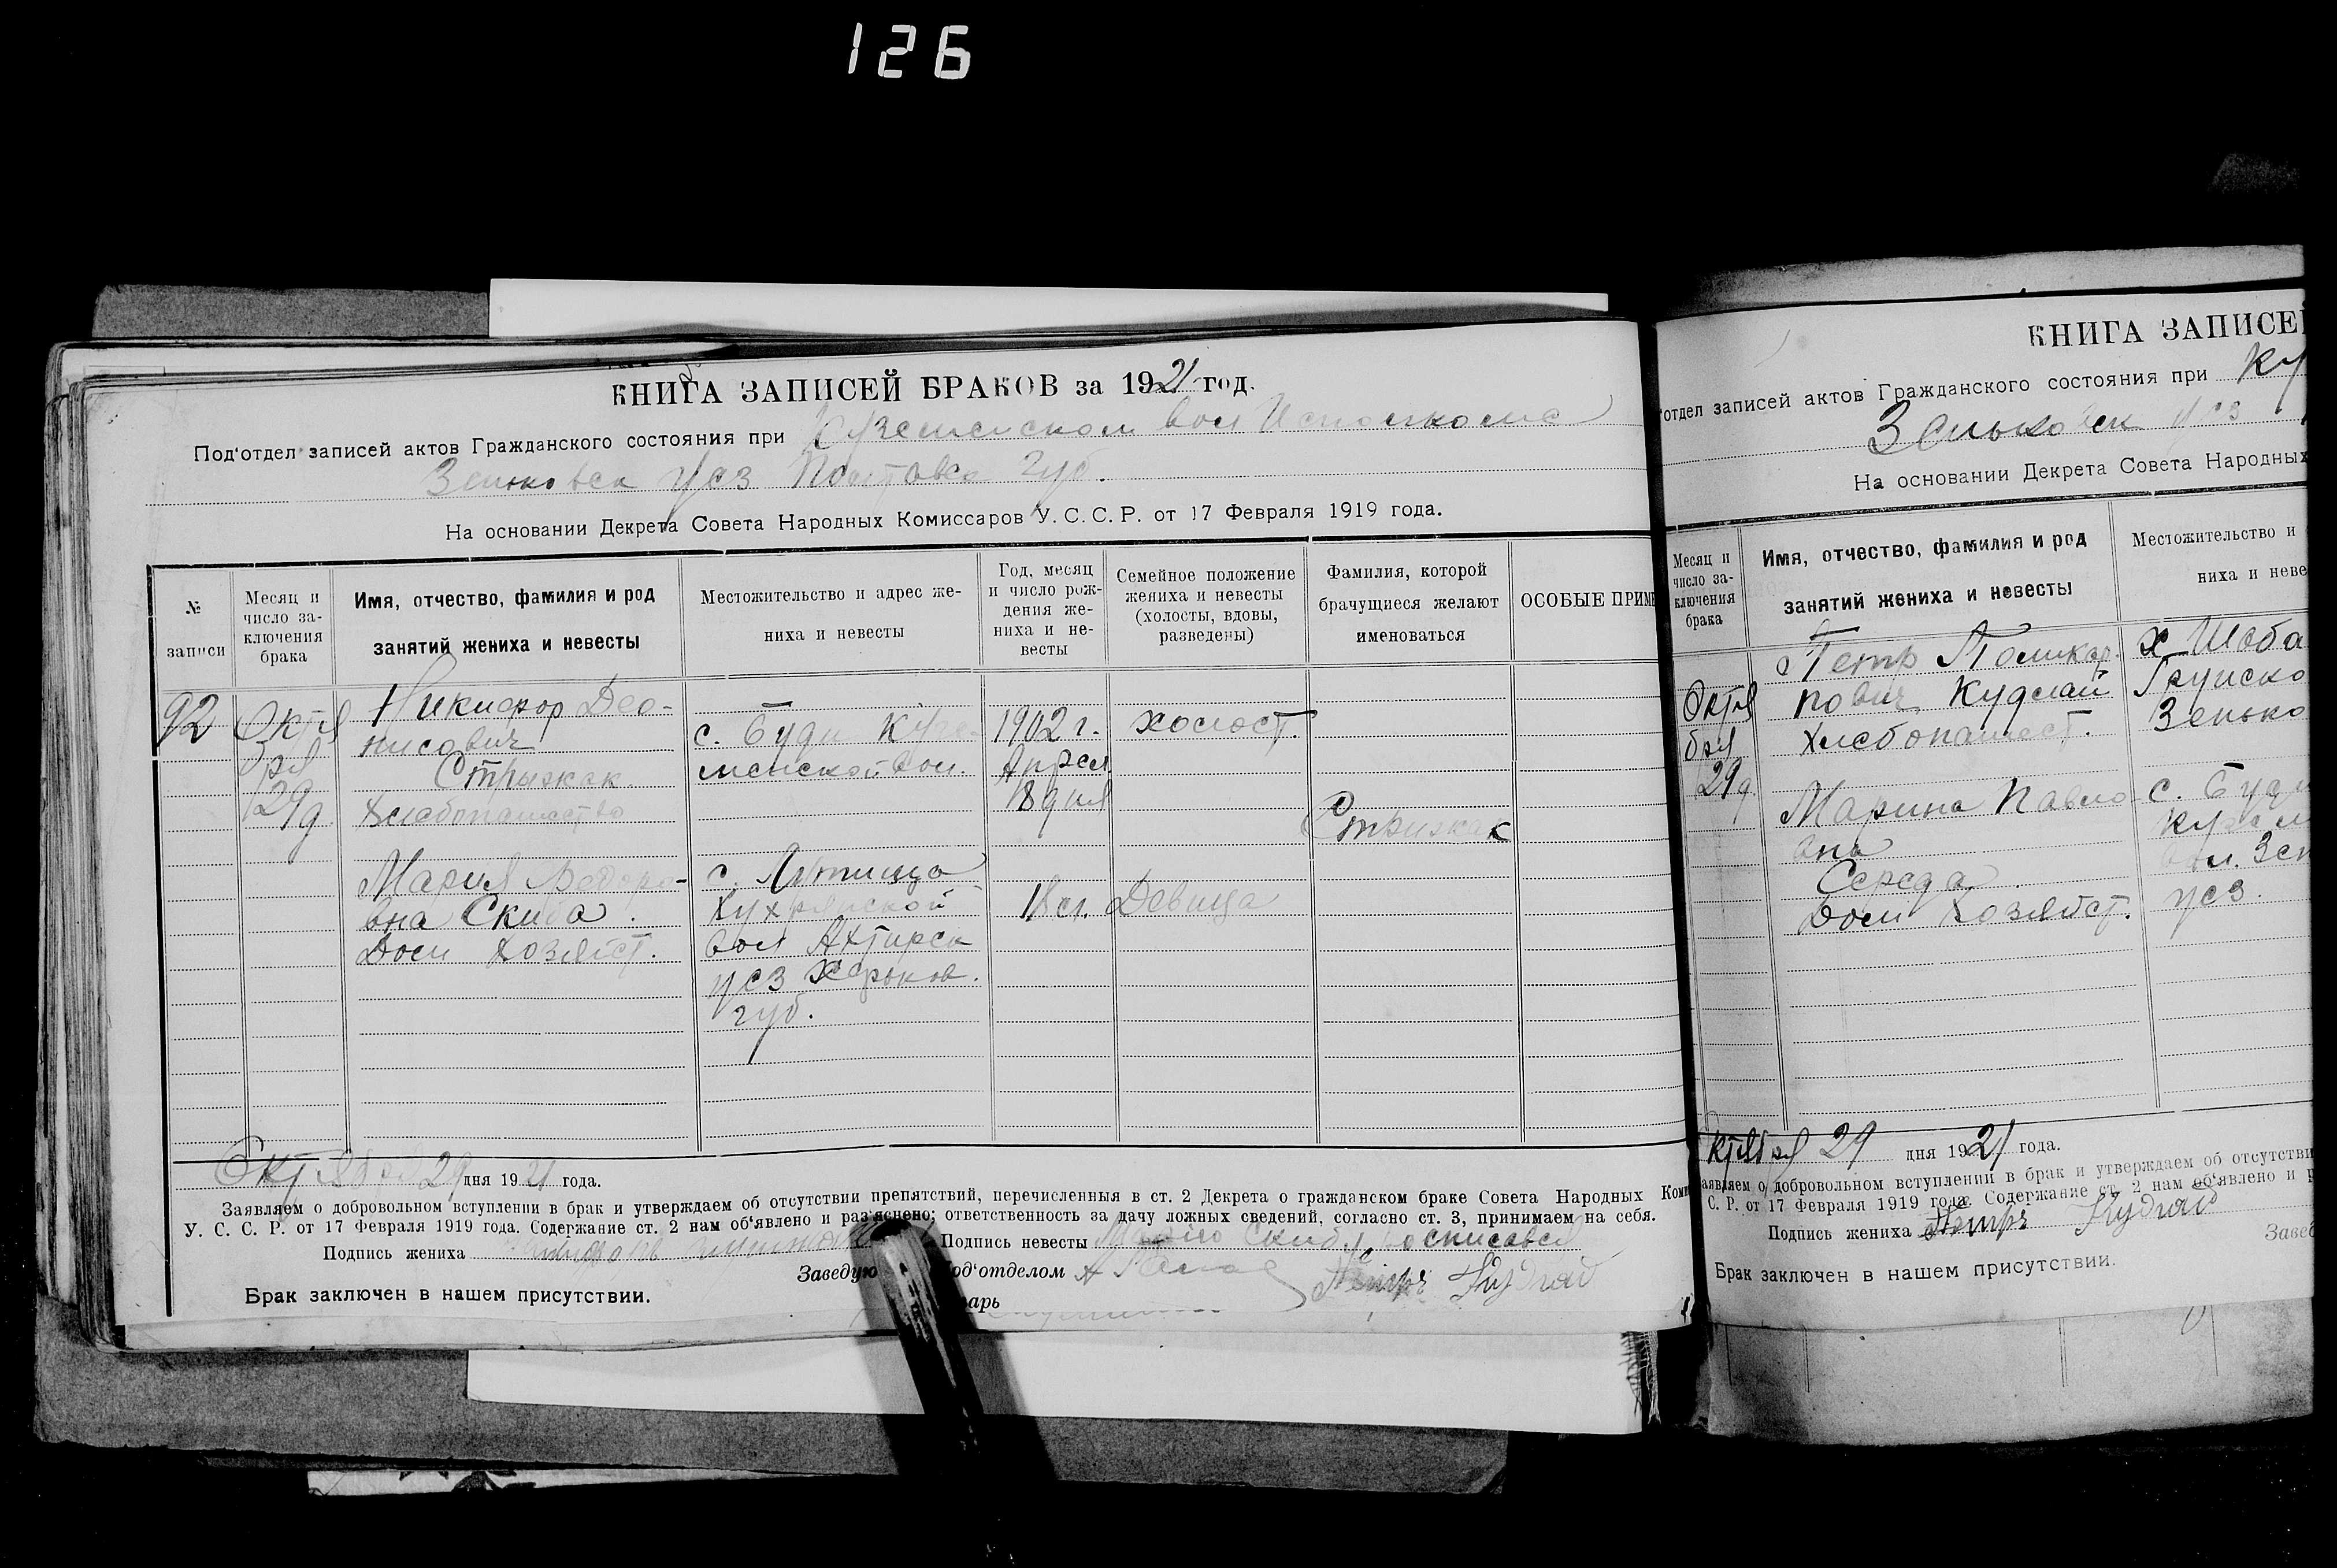 126
КНИГА ЗАПИСЕЙ БРАКОВ за 1921 год.
Под'отдел записей актов Гражданского состояния при Куземенском вол Исполкоме
Зеньковск уез Полтавск губ.
На основании Декрета Совета Народных Комиссаров У. С. С. Р. от 17 Февраля 1919 года.
№ записи
Месяц и число заключения брака
Имя, отчество, фамилия и род занятий жениха и невесты
Местожительство и адрес жениха и невесты
Год, месяц и число рождения жениха и невесты
Семейное положение жениха и невесты (холосты, вдовы, разведены)
Фамилия, которой брачущиеся желают именоваться
ОСОБЫЕ ПРИМЕ
92
Октя
бря
29д
Никифор Део-
нисович
Стрижак
Хлебопашество
с. Буди Кузе-
менской вол.
1902 г.
Апрел
18 дня
холост.
Стрижак
Мария Федоро-
вна Скиба.
Дом хозяйст.
с.
вол Ахтирск
уез Харьков.
губ.
18 л.
Девица
Октября 29 дня 1921 года.
Заявляем о добровольном вступлении в брак и утверждаем об отсутствии препятствий, перечисленныя в ст. 2 Декрета о гражданском браке Совета Народных Коми
У. С. С. Р. от 17 Февраля 1919 года. Содержание ст. 2 нам об'явлено и раз'яснено; ответственность за дачу ложных сведений, согласно ст. 3, принимаем на себя.
Подпись жениха
Подпись невесты
Заведую
од'отделом
Петръ Кудлай
Брак заключен в нашем присутствии.
арь
КНИГА ЗАПИСЕЙ
'отдел записей актов Гражданского состояния при Ку
Зеньковск уез
На основании Декрета Совета Народных
Месяц и число заключения брака
Имя, отчество, фамилия и род занятий жениха и невесты
Местожительство и
ниха и неве
Октя
бря
29д
Петр Поликар-
пович Кудлай
Хлебопашест.
Марина Павло-
вна
Середа
Дом хозяйст.
х Шоба
Грунско
Зенько
с. Буди
Кузем
вол. Зен
уез.
ктября 29 дня 1921 года.
аявляем о добровольном вступлении в брак и утверждаем об отсутстви
С. Р. от 17 Февраля 1919 года. Содержание ст. 2 нам об'явлено и р
Подпись жениха Петръ Кудлай
Завед
Брак заключен в нашем присутствии.